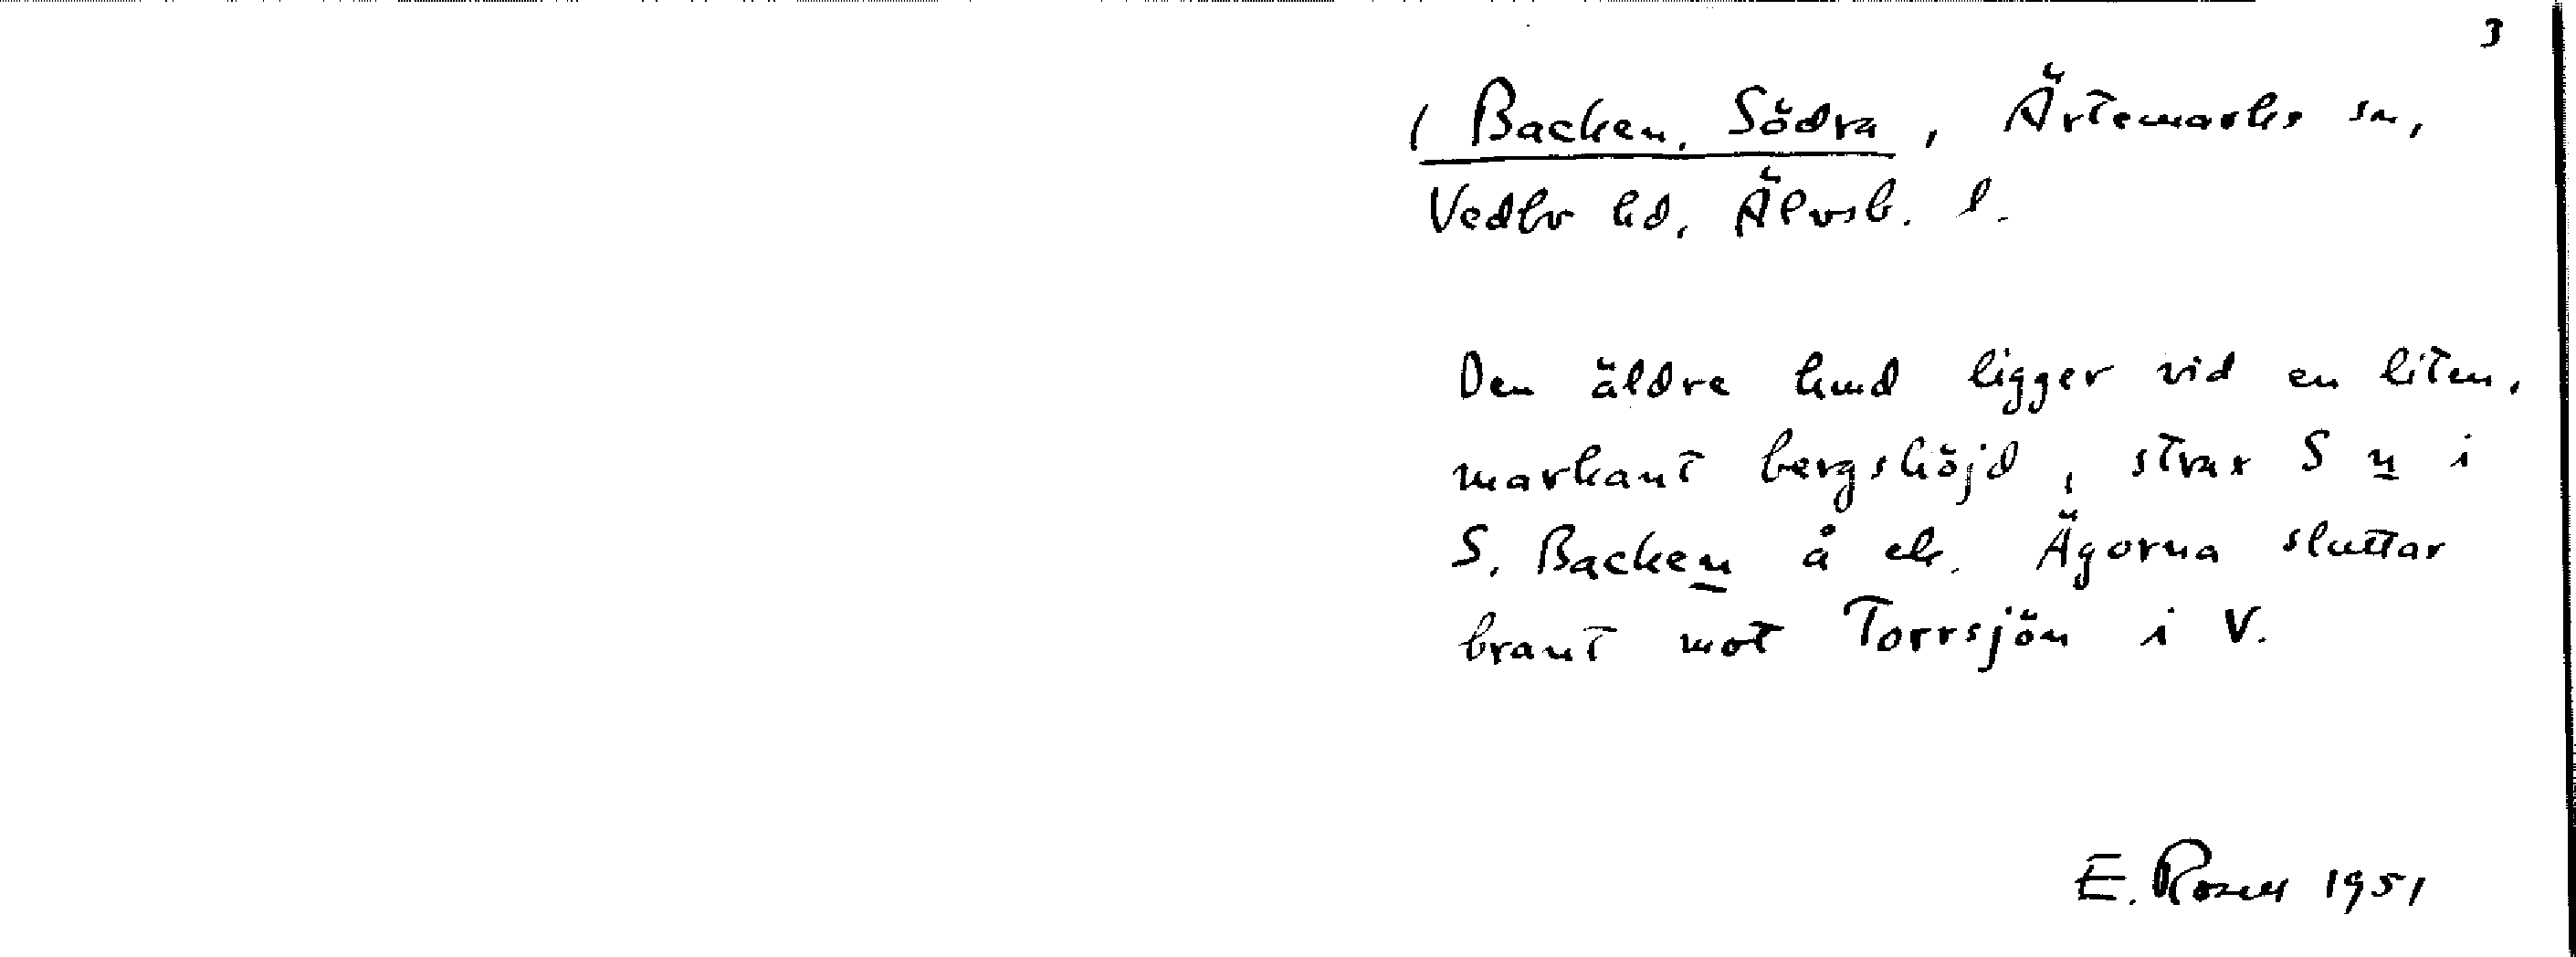 3
( Backen, Södra, Ärtemarks sn,
Vedbo hd, Älvsb. l.
Den äldre hmd ligger vid en liten,
markant bergshöjd, strax S n i
S. Backen å ek. Ägorna sluttar
brant mot Torrsjön i V.
E. Rosell 1951